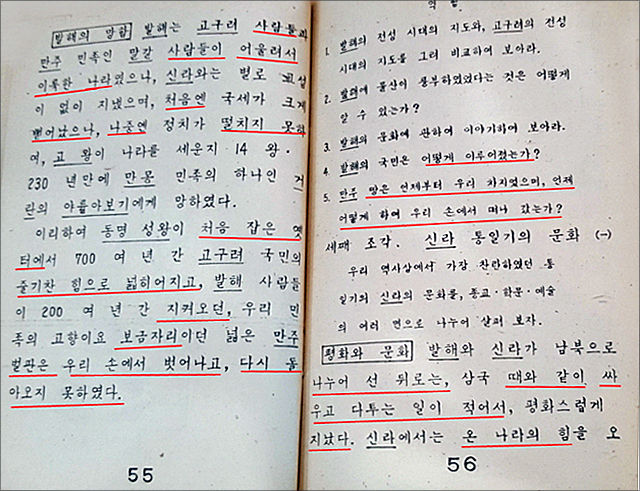 발해의 망함 발해는 고구려 사람들과
만주 민족인 말갈 사람들이 어울려서
이룩한 나라였으나, 신라와는 별로 교섭
이 없이 지냈으며, 처음엔 국세가 크게
뻗어났으나, 나중엔 정치가 떨치지 못하
여, 고 왕이 나라를 세운지 14 왕·
230 년만에 만몽 민족의 하나인 거
란의 야률아보기에게 망하였다.
이리하여 동명 성왕이 처음 잡은 옛
터에서 700 여 년 간 고구려 국민의
줄기찬 힘으로 넓히어지고, 발해 사람들
이 200 여 년 간 지켜오던, 우리 민
족의 고향이요 보금자리이던 넓은 만주
벌판은 우리 손에서 벗어나고, 다시 돌
아오지 못하였다.
55
1. 발해의 전성 시대의 지도와, 고구려의 전성
시대의 지도를 그려 비교하여 보아라.
2. 발해에 물산이 풍부하였었다는 것은 어떻게
알 수 있는가?
3. 발해의 문화에 관하여 이야기하여 보아라.
4. 발해의 국민은 어떻게 이루어졌는가?
5. 만주 땅은 언제부터 우리 차지였으며, 언제
어떻게 하여 우리 손에서 떠나 갔는가?
세째 조각. 신라 통일기의 문화 (一)
우리 역사상에서 가장 찬란하였던 통
일기의 신라의 문화를, 종교·학문·예술
의 여러 면으로 나누어 살펴 보자.
평화와 문화 발해와 신라가 남북으로
나누어 선 뒤로는, 삼국 때와 같이 싸
우고 다투는 일이 적어서, 평화스럽게
지났다. 신라에서는 온 나라의 힘을 오
56